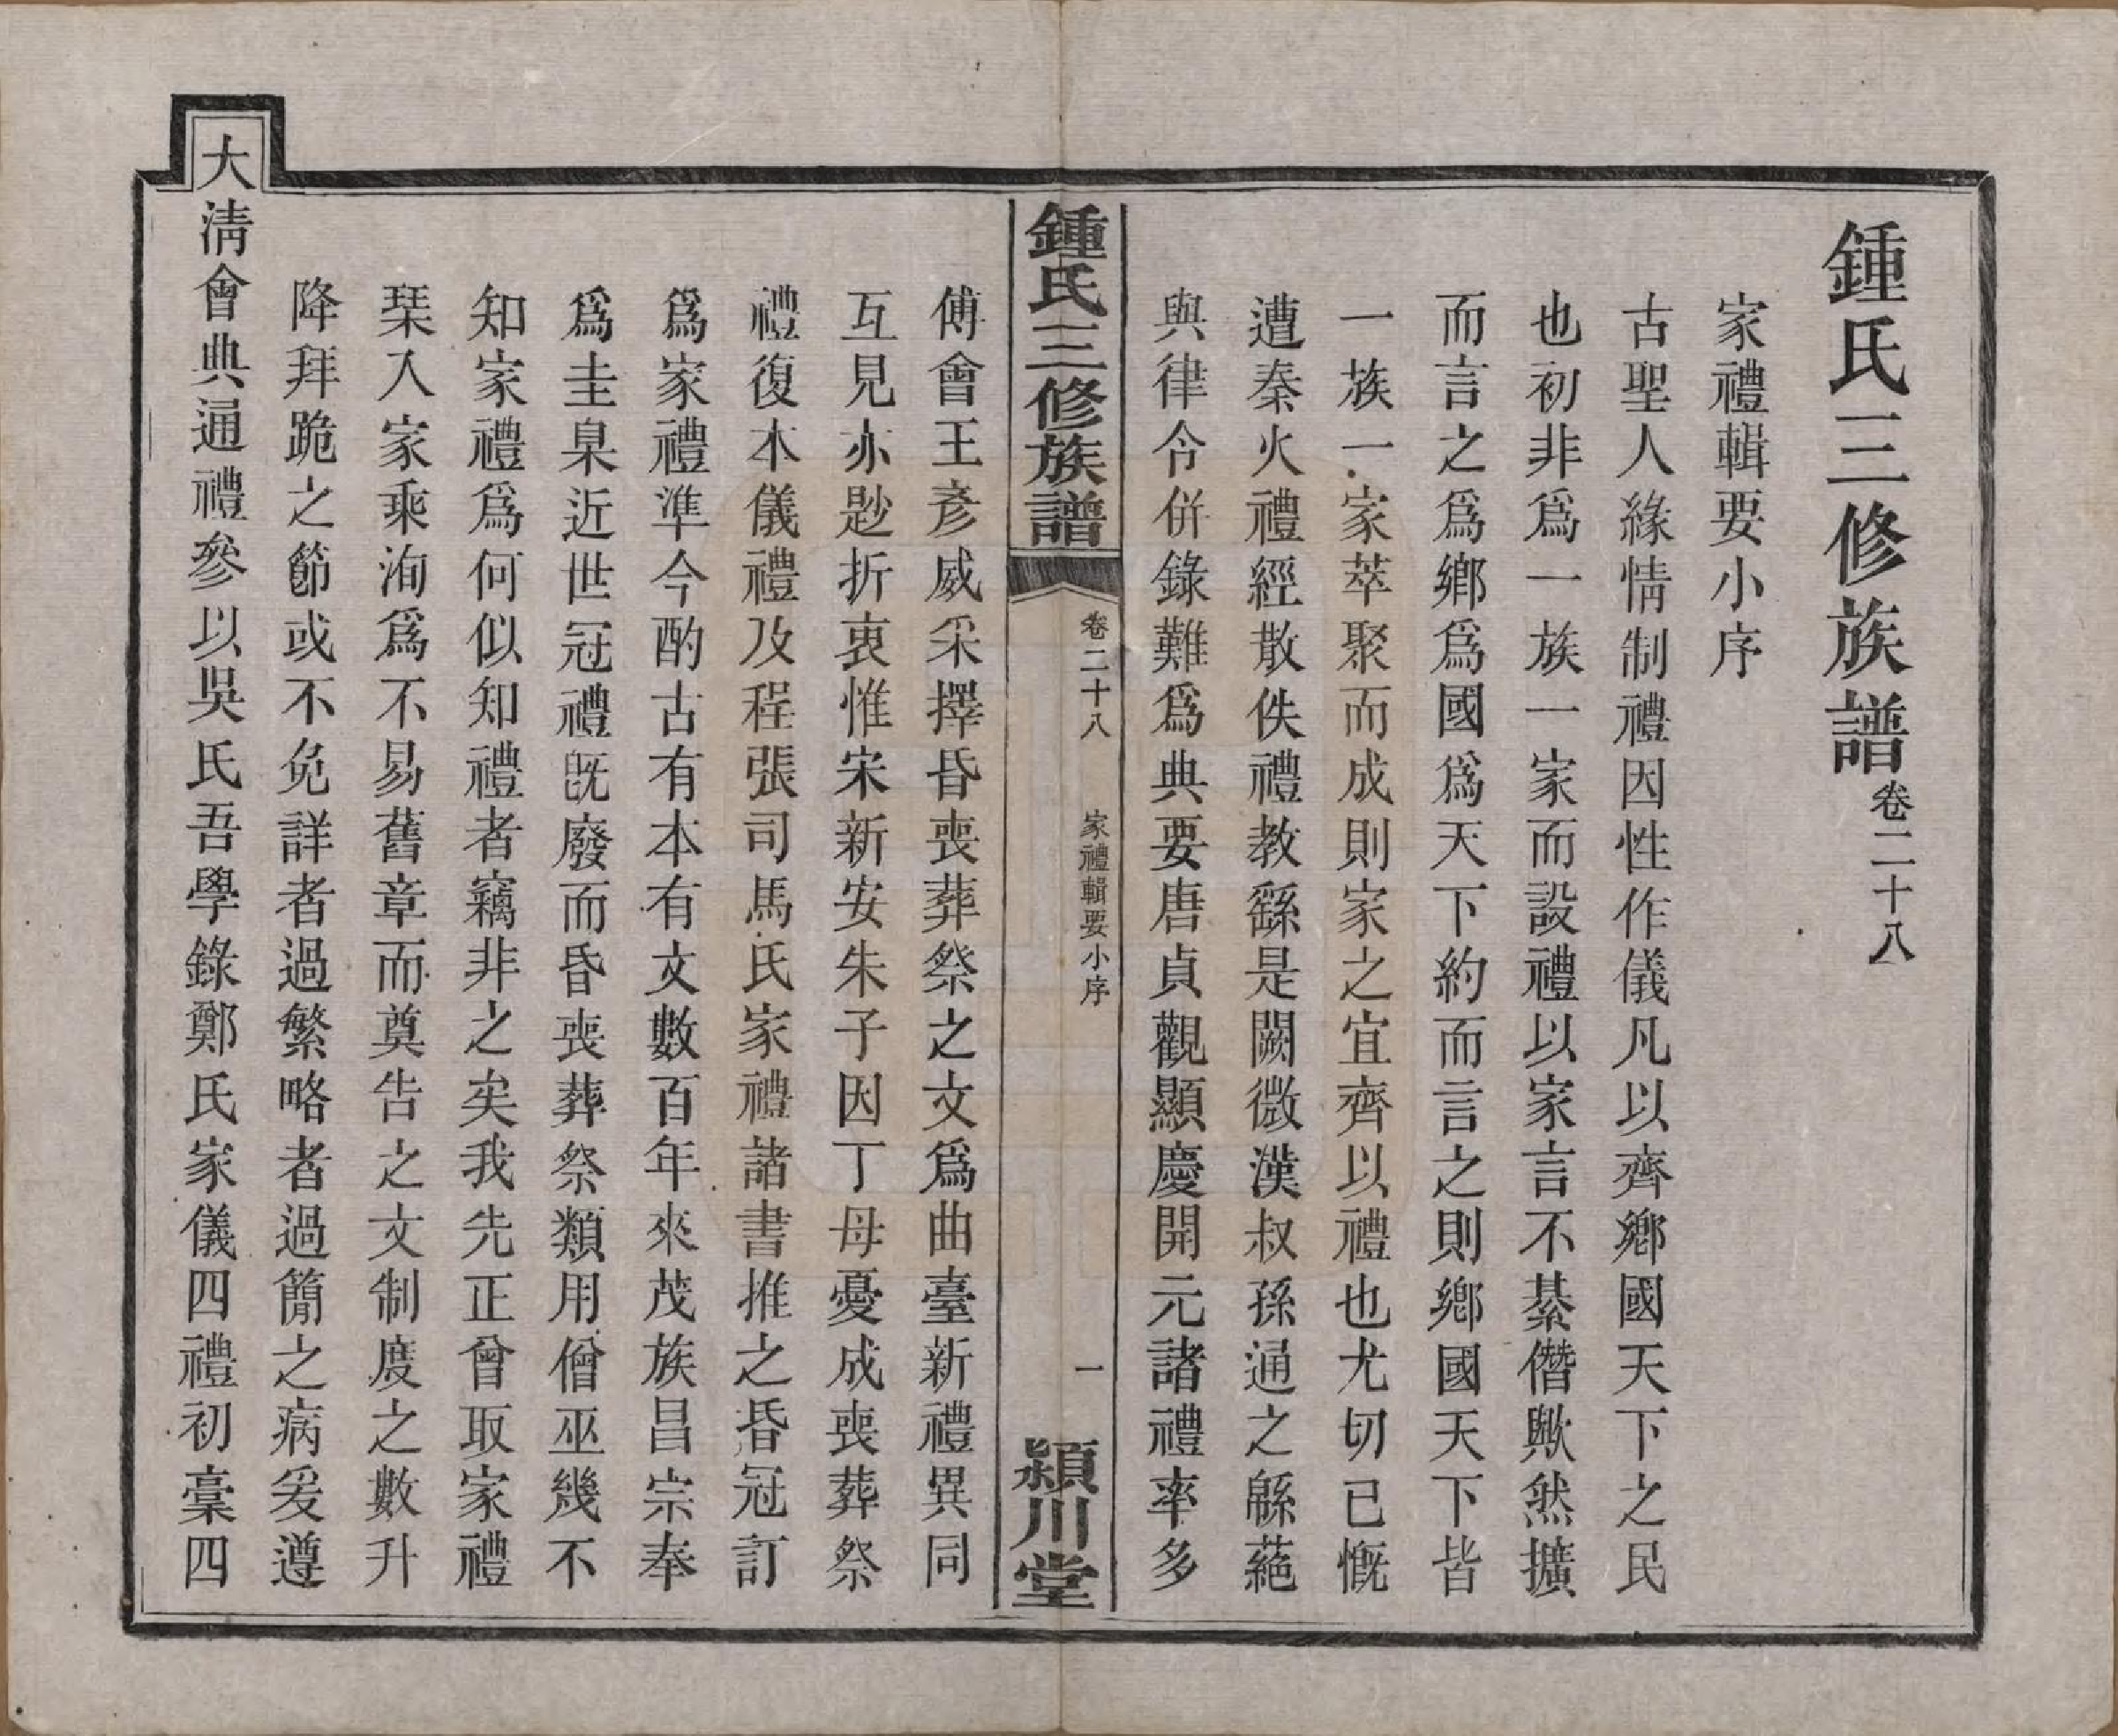 鍾氏三修族譜卷二十八
家禮輯要小序
古聖人緣情制禮因性作儀凡以齊鄉國天下之民
也初非爲一族一家而設禮以家言不綦僭歟然擴
而言之爲鄉爲國爲天下約而言之則鄉國天下皆
一族一家萃聚而成則家之宜齊以禮也尤切已慨
遭秦火禮經散佚禮教繇是闕微漢叔孫通之緜蕝
與律令併錄難爲典要唐貞觀顯慶開元諸禮率多
鍾氏三修族譜
卷二十八 家禮輯要小序 一
潁川堂
傅會王彥威采擇昏喪葬祭之文爲曲臺新禮異同
互見亦尟折衷惟宋新安朱子因丁母憂成喪葬祭
禮復本儀禮及程張司馬氏家禮諸書推之昏冠訂
爲家禮準今酌古有本有文數百年來茂族昌宗奉
爲圭臬近世冠禮旣廢而昏喪葬祭類用僧巫幾不
知家禮爲何似知禮者竊非之矣我先正曾取家禮
栞入家乘洵爲不易舊章而奠告之文制度之數升
降拜跪之節或不免詳者過繁略者過簡之病爰遵
大淸會典通禮參以吳氏吾學錄鄭氏家儀四禮初稾四